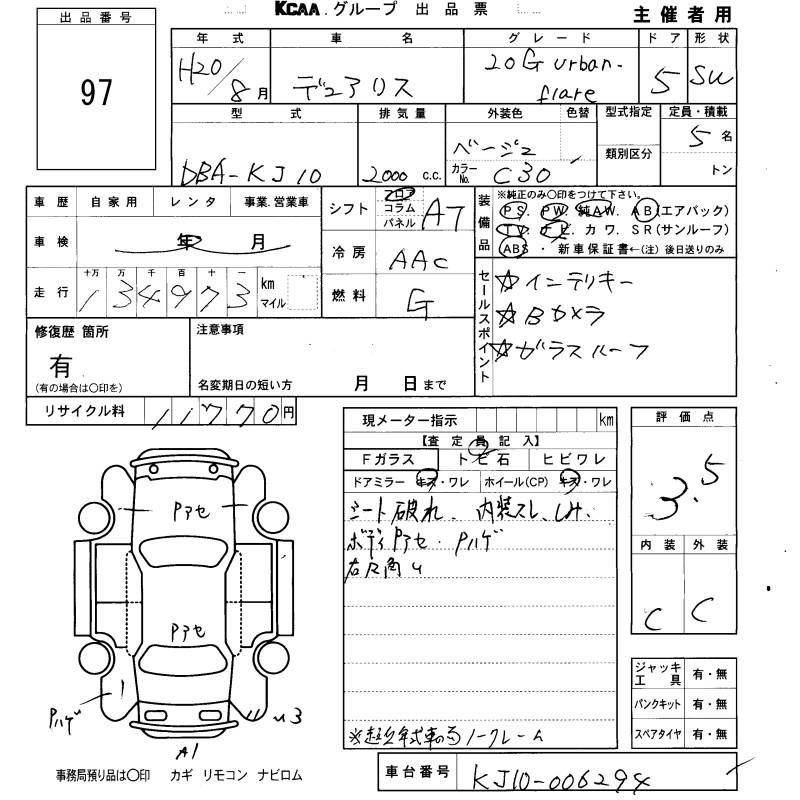 KCAA.グループ 出品票
主催者用
出品番号
97
年式 車名 グレード ドア 形状
H20/8月 デュアリス 20G urban-flare 5 SW
型式 排気量 外装色 色替 型式指定 定員・積載
類別区分
DBA-KJ10 2000 c.c. ベージュ カラーNo. C30 5名
トン
車歴 自家用 レンタ 事業.営業車
車検 年 月
走行 十万 万 千 百 十 一
1 3 4 9 7 3 km マイル
シフト フロア コラム パネル AT
冷房 AAC
燃料 G
装備品
※純正のみ○印をつけて下さい。
PS. PW. 純AW. AB(エアバック)
TV. ナビ. カワ. SR(サンルーフ)
ABS ・ 新車保証書←(注) 後日送りのみ
セールスポイント
☆インテリキー
☆Bカメラ
☆ガラスルーフ
修復歴 箇所
有
(有の場合は○印を)
注意事項
名変期日の短い方 月 日まで
リサイクル料 11770円
現メーター指示 km
【査定員記入】
Fガラス トビ石 ヒビワレ
ドアミラー キズ・ワレ ホイール(CP) キズ・ワレ
シート破れ、内装スレ、しみ、
ボディPアセ・Pハゲ
右Rタ角U
※超低年式車の為ノークレーム
評価点
3.5
内装 外装
C C
ジャッキ工具 有・無
パンクキット 有・無
スペアタイヤ 有・無
Pアセ
Pアセ
1
Pハゲ
U3
A1
事務局預り品は○印 カギ リモコン ナビロム
車台番号 KJ10-006294